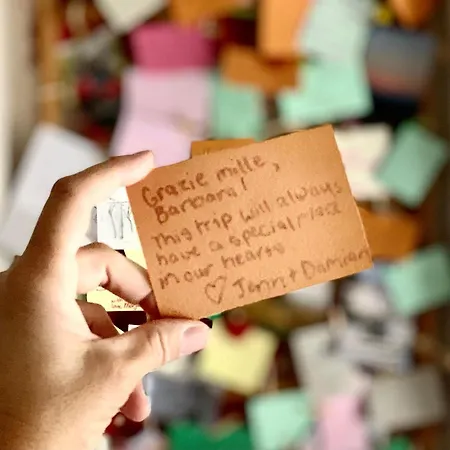 Grazie mille,
Barbara!
This trip will always
have a special place
in our hearts
♡ Jenn + Damian